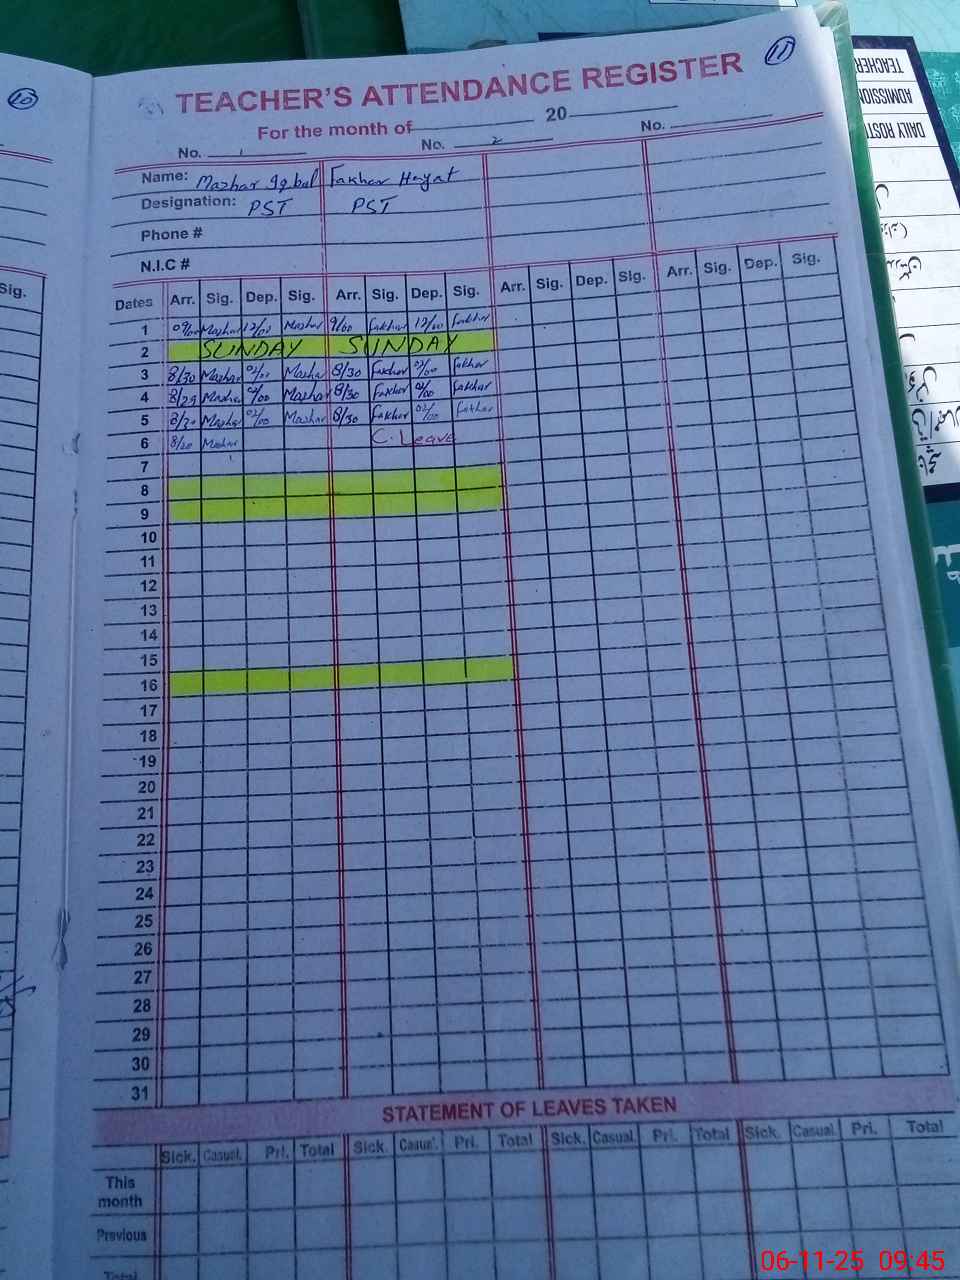 10
11
TEACHER'S ATTENDANCE REGISTER
For the month of 20
No. 1 No. 2 No.
Name: Mazhar Iqbal Fakhar Hayat
Designation: PST PST
Phone #
N.I.C #
Dates Arr. Sig. Dep. Sig. Arr. Sig. Dep. Sig. Arr. Sig. Dep. Sig. Arr. Sig. Dep. Sig.
1 09/00 Mazhar 12/00 Mazhar 9/00 Fakhar 12/00 Fakhar
2 SUNDAY SUNDAY
3 8/30 Mazhar 02/00 Mazhar 8/30 Fakhar 02/00 Fakhar
4 8/29 Mazhar 02/00 Mazhar 8/30 Fakhar 02/00 Fakhar
5 8/30 Mazhar 02/00 Mazhar 8/30 Fakhar 02/00 Fakhar
6 8/30 Mazhar C. Leave
7
8
9
10
11
12
13
14
15
16
17
18
19
20
21
22
23
24
25
26
27
28
29
30
31
STATEMENT OF LEAVES TAKEN
Sick. Casual. Pri. Total Sick. Casual. Pri. Total Sick. Casual. Pri. Total Sick. Casual. Pri. Total
This month
Previous
Total
Sig.
TEACHER
ADMISSION
DAILY ROST
06-11-25 09:45